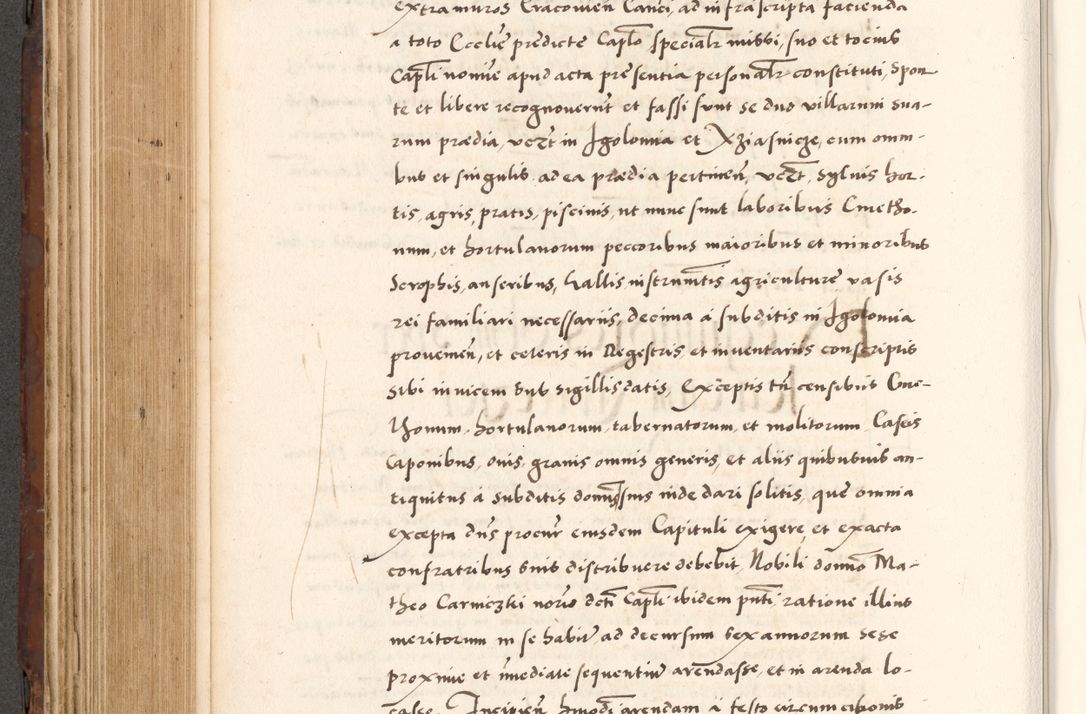 extra muros Cracovien̄ Can̄ci, ad infrascripta facienda
a toto Eccl̄ie predicte Cap̄lo specialr̄ missi, suo et tocius
Cap̄li nomine apud acta presentia personalr̄ constituti, spon-
te et libere recognoverūt et fassi sunt se duo villarum sua-
rum prædia, vcz̄t in Igolomia et Xziasnicze, cum omni-
bus et singulis ad ea prædia pertinen̄, vcz̄t, sylvis hor-
tis, agris, pratis, piscinis, ut nunc sunt laboribus Cmetho-
num, et hortulanorum peccoribus maioribus et minoribus
Scrophis, anseribus, Gallis instrumētis agriculture vasis
rei familiari necessariis, decima a subditis in Igolomia
provenien̄, et ceteris in Regestris et inventariis conscriptis
Sibi invicem sub sigillis datis, Exceptis tn̄ censibus Cme-
thonum, hortulanorum, tabernatorum, et molitorum, Caseis
Caponibus, ovis, granis omnis generis, et aliis quibusvis an-
tiquitus a subditis dominis suis inde dari solitis, que omnia
excepta dn̄s procur̄ eiusdem Capituli exigere et exacta
confratribus suis distribuere debebit, Nobili domīo Ma-
theo Carniczki norīo dcti Cap̄li ibidem pn̄ti, ratione illius
meritorum in se habit̄ ad decursum sex annorum sese
proxime et īmediate sequentiū arendasse, et in arenda lo-
casse. Incipien̄ hmōdi arendam a festo circumcisionis